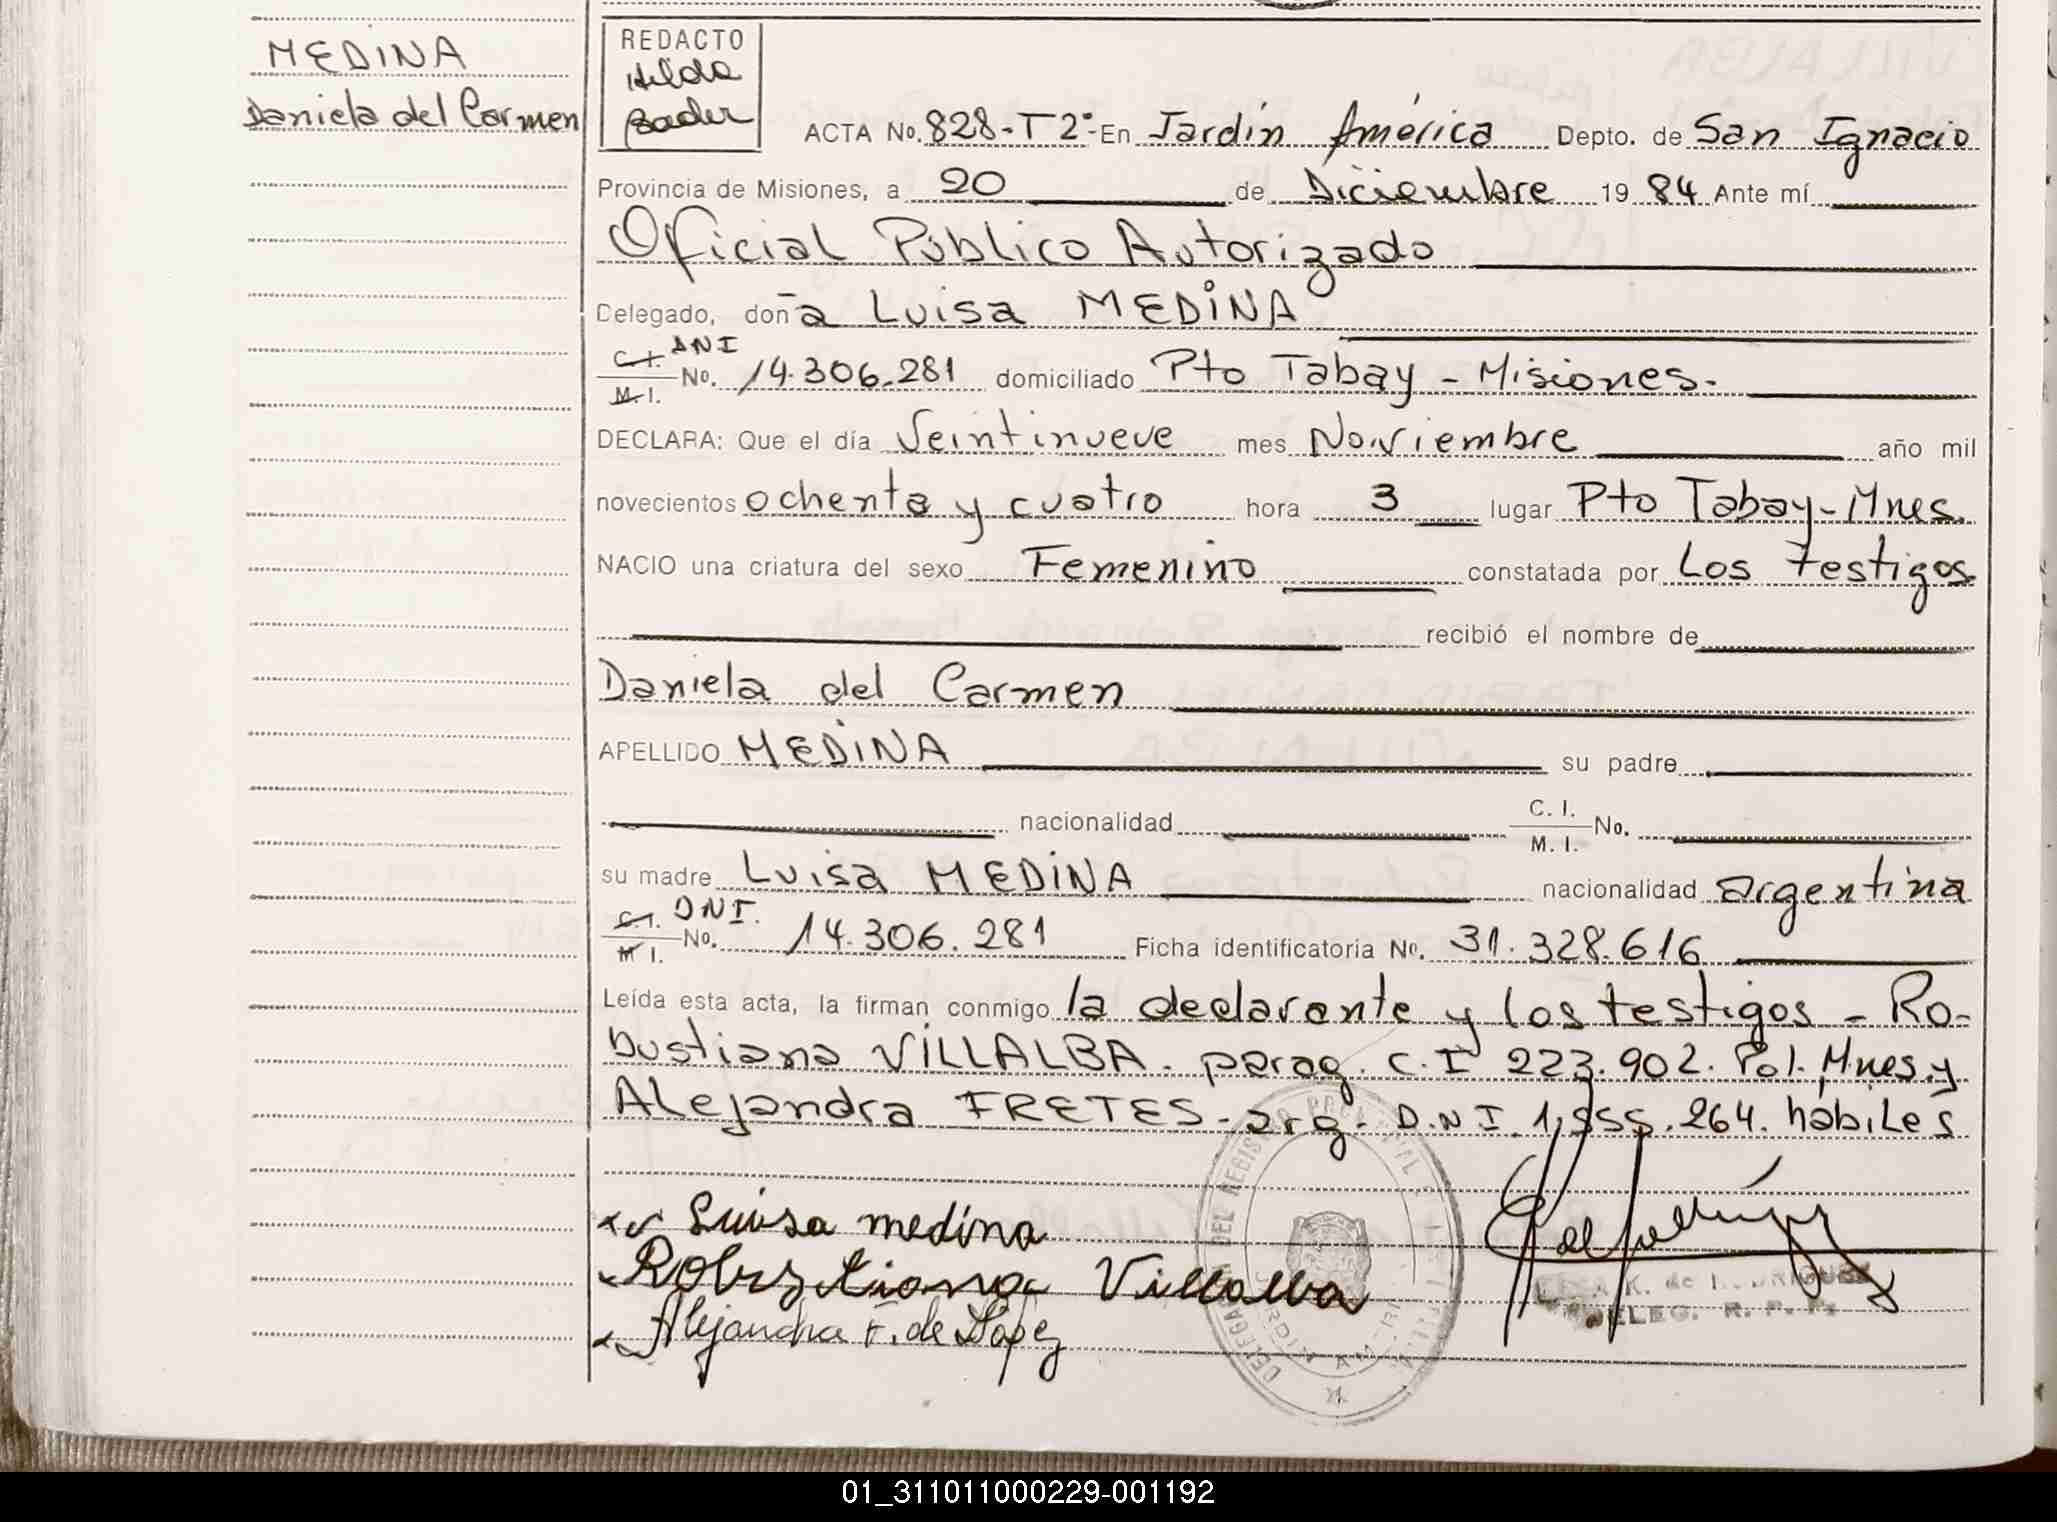 MEDINA
Daniela del Carmen
REDACTO
Hilda
Bader
ACTA No. 828-T2º- En Jardín América Depto. de San Ignacio
Provincia de Misiones, a 20 de Diciembre 19 84 Ante mí
Oficial Público Autorizado
Delegado, doña Luisa MEDINA
C.I. DNI
M.I. No. 14.306.281 domiciliado Pto Tabay - Misiones.
DECLARA: Que el día Veintinueve mes Noviembre año mil
novecientos ochenta y cuatro hora 3 lugar Pto Tabay-Mnes.
NACIO una criatura del sexo Femenino constatada por Los testigos
recibió el nombre de
Daniela del Carmen
APELLIDO MEDINA su padre
nacionalidad C. I. M. I. No.
su madre Luisa MEDINA nacionalidad argentina
C.I. DNI.
M I. No. 14.306.281 Ficha identificatoria No. 31.328.616
Leída esta acta, la firman conmigo la declarante y los testigos - Ro-
bustiana VILLALBA. parag. C.I 223.902. Pol. Mnes. y
Alejandra FRETES - arg. D.N I. 1.955.264. hábiles
Luisa medina
Robustiana Villalba
Alejandra F. de Lopez
DELEG. R. P. P.
01_311011000229-001192